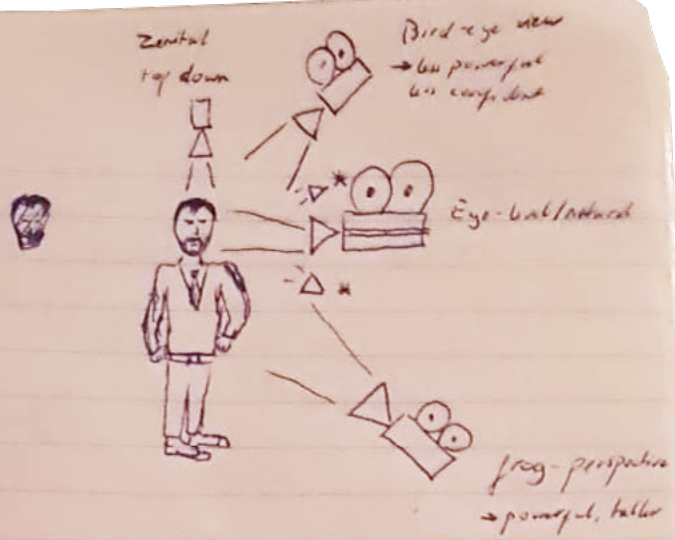 Zenital
top down
Bird-eye view
→ less powerful
less confident
* Eye-level/natural
*
frog-perspective
→ powerful, taller